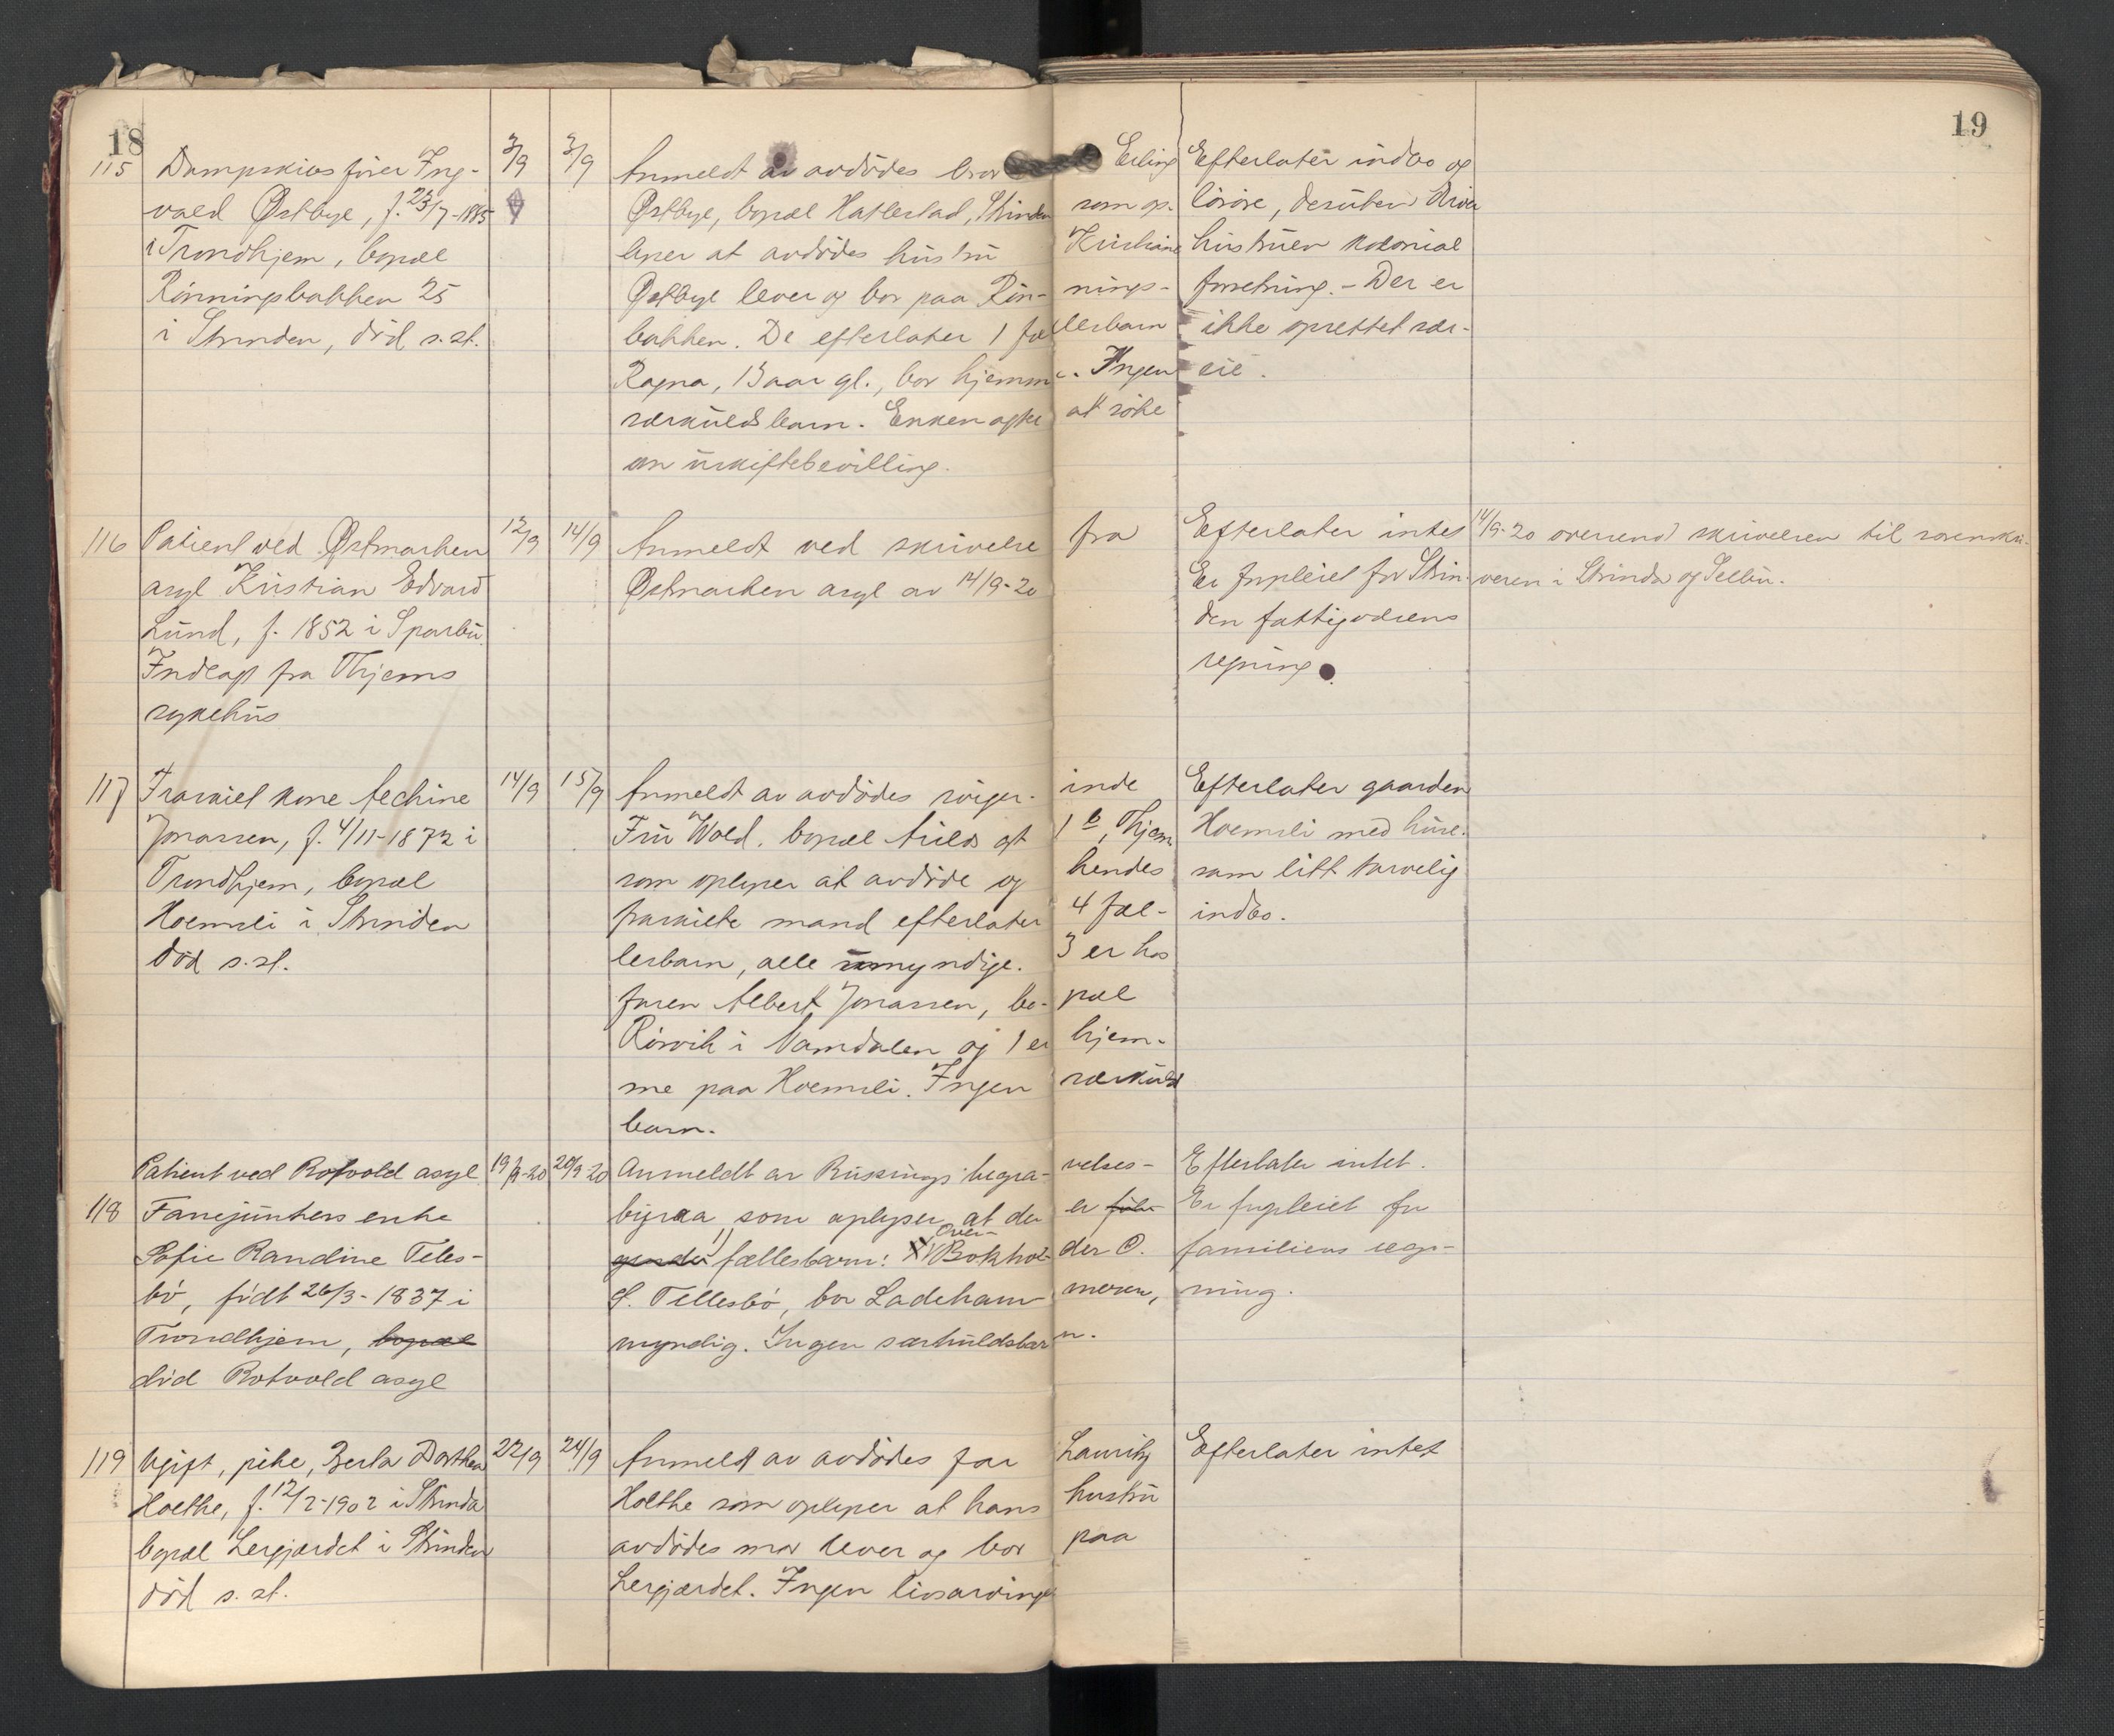 18
19
115 Dampskibsfører Ing-
vald Østbye, f. 23/7-1885
i Trondhjem, bopæl
Rønningsbakken 25
i Strinden, død s.st.
3/9 3/9
Anmeldt av avdødes bror Erling
Østbye, bopæl Hatlestad, Strinden som op-
lyser at avdødes hustru Kristiane
Østbye lever og bor paa Røn- nings-
bakken. De efterlater 1 fæl lesbarn
Ragna, 13 aar gl., bor hjemme. Ingen
særkuldsbarn. Enken agter at søke
om uskiftebevilling.
Efterlater indbo og
løsøre, desuten driver
hustruen kolonial
forretning. - Der er
ikke oprettet sær-
eie.
116 Patient ved Østmarken
asyl Kristian Edvard
Lund, f. 1852 i Sparbu.
Indlagt fra Thjems
sykehus
12/9 14/9
Anmeldt ved skrivelse fra
Østmarken asyl av 14/9-20
Efterlater intet
Er forpleiet for Strin-
den fattigvæsens
regning.
14/9-20 oversend skrivelsen til sorenskri-
veren i Strinda og Selbu.
117 Fraskilt kone
Jonassen, f. 4/11-1872 i
Trondhjem, bopæl
Hoemsli i Strinden
død s.st.
14/9 15/9
Anmeldt av avdødes sviger- inde
Fru Wold, bopæl 1 b, Thjem
som oplyser at avdøde og hendes
fraskilte mand efterlater 4 fæl-
lesbarn, alle umyndige. 3 er hos
faren Albert Jonassen, bo- pæl
Rørvik i Namdalen og 1 er hjem-
me paa Hoemsli. Ingen særkulds
barn.
Efterlater gaarden
Hoemsli med huse.
samt litt tarvelig
indbo.
Patient ved Rotvold asyl
118 Fanejunkers enke
Sofie Randine Telles-
bø, født 26/3-1837 i
Trondhjem, bopæl
død Rotvold asyl
19/9-20 20/9-20
Anmeldt av Russings begra- velses-
byraa, som oplyser at der er
1) fællesbarn: Over-
Bokhol- der O.
S. Tellesbø, bor Ladeham- meren,
myndig. Ingen særkuldsbar n.
Efterlater intet.
Er forpleiet for
familiens reg-
ning.
119 Ugift, pike, Berta Dorthea
Holthe, f. 12/2-1902 i Strinda
bopæl Lergjærdet i Strinden
død s.st.
22/9 24/9
Anmeldt av avdødes far Lauritz
Holthe som oplyser at hans hustru
avdødes mor lever og bor paa
Lergjærdet. Ingen livsarvinger
Efterlater intet